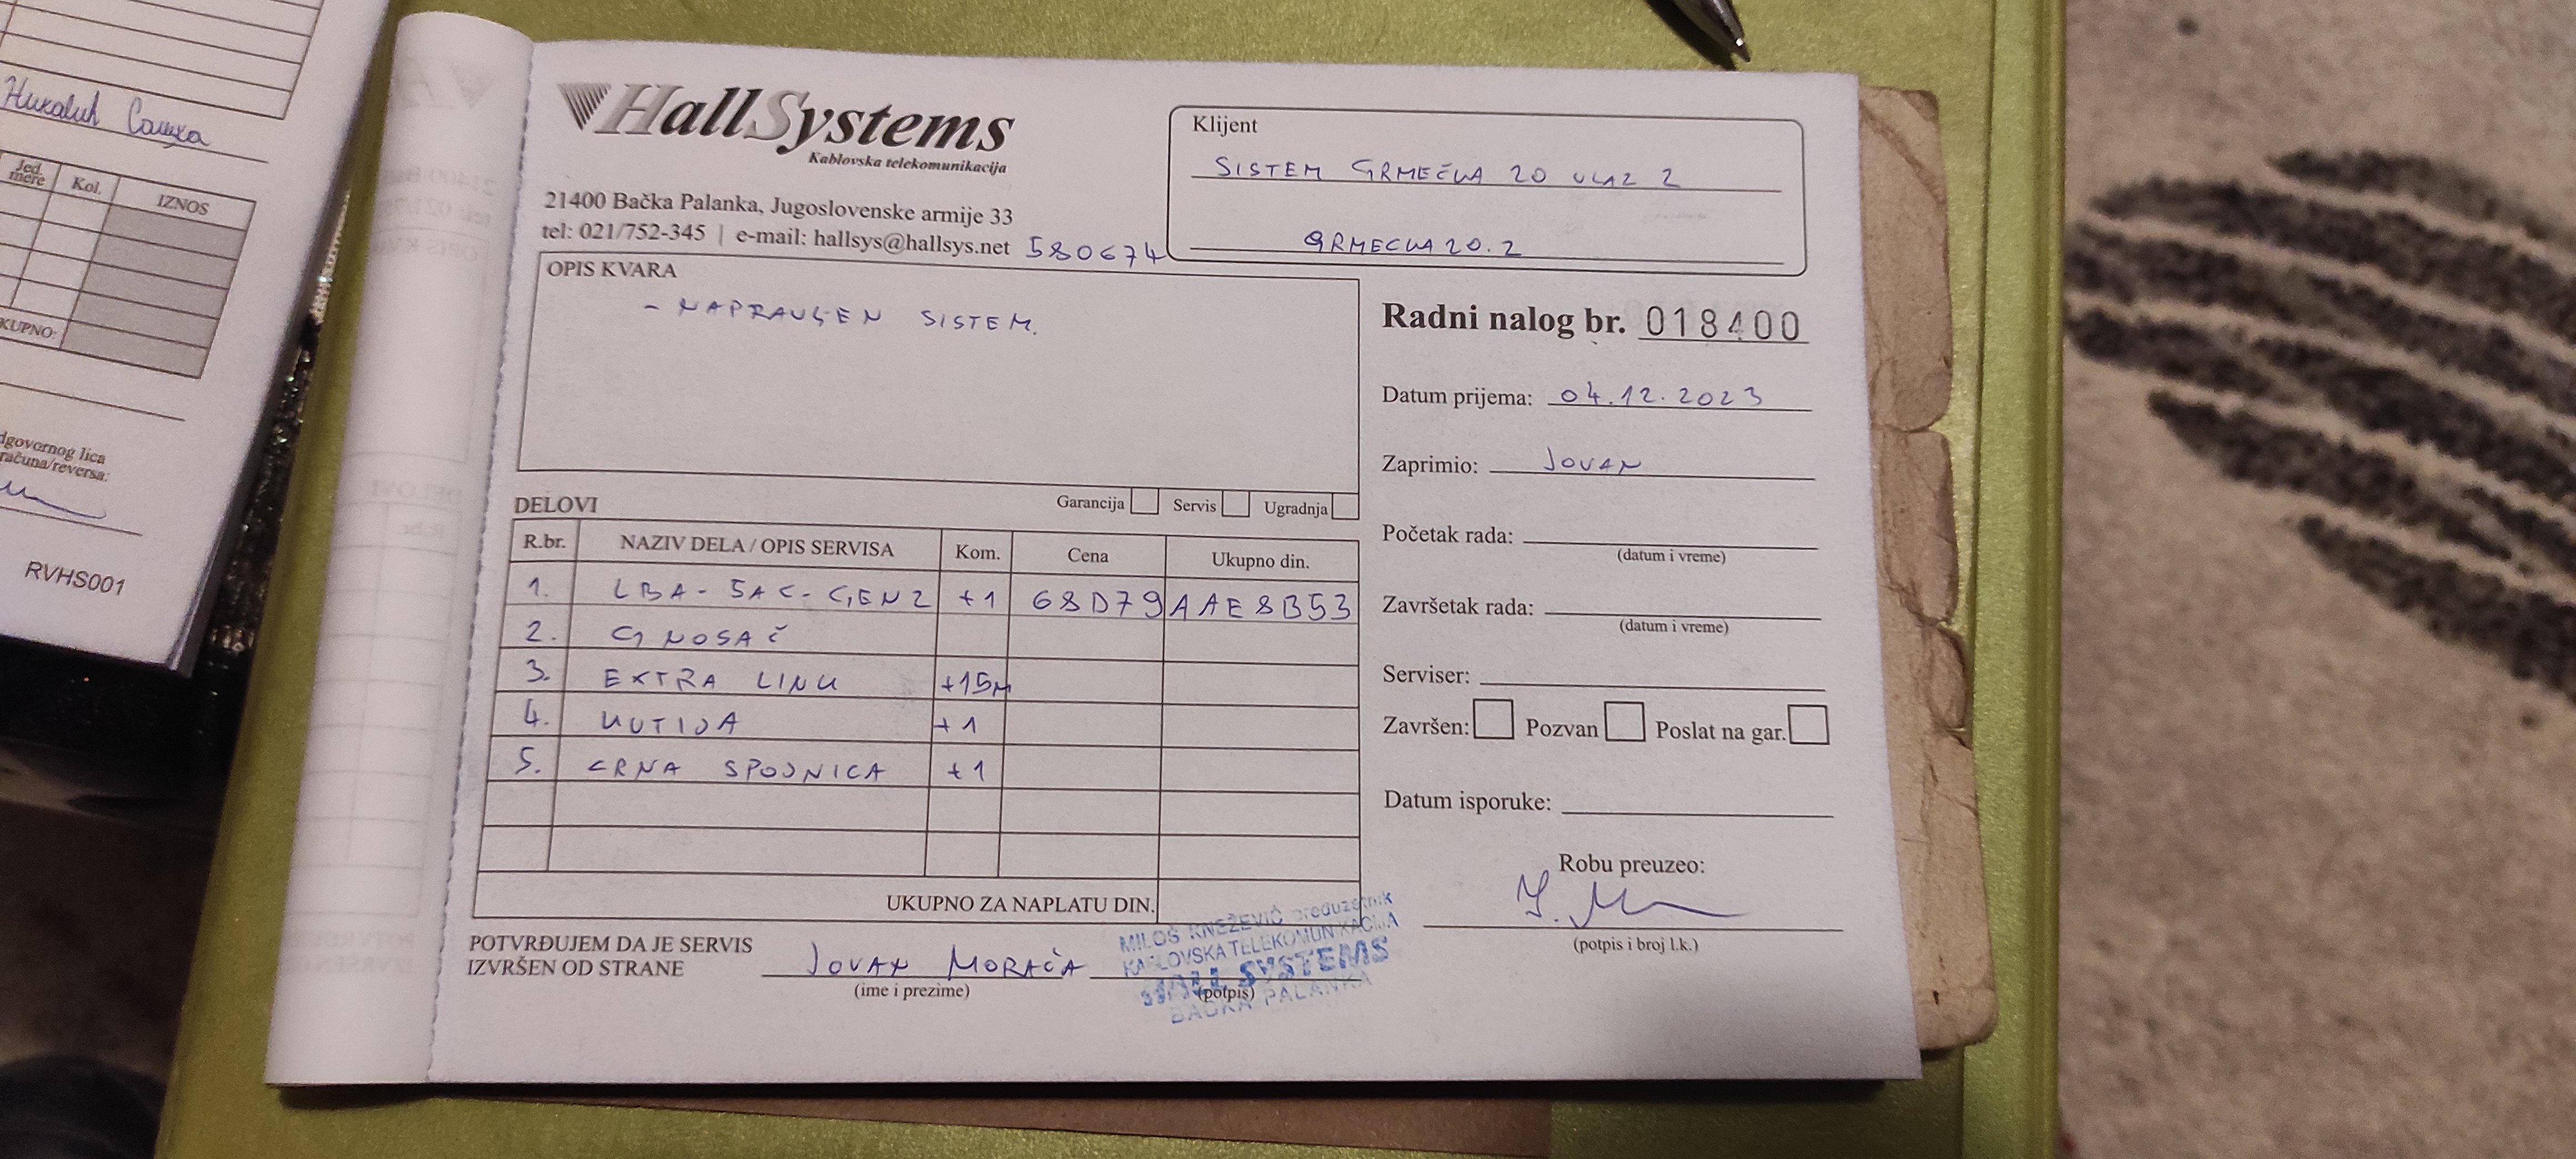 Николић Сашка
Jed. mere Kol. IZNOS
KUPNO:
dgovornog lica
računa/reversa:
RVHS001
HallSystems
Kablovska telekomunikacija
21400 Bačka Palanka, Jugoslovenske armije 33
tel: 021/752-345 | e-mail: hallsys@hallsys.net 580674
Klijent
SISTEM GRMEČKA 20 ULAZ 2
GRMEČKA 20.2
OPIS KVARA
- NAPRAVLJEN SISTEM.
Radni nalog br. 018400
Datum prijema: 04.12.2023
Zaprimio: JOVAN
Početak rada:
(datum i vreme)
Završetak rada:
(datum i vreme)
Serviser:
Završen: Pozvan Poslat na gar.
Datum isporuke:
Robu preuzeo:
(potpis i broj l.k.)
DELOVI Garancija Servis Ugradnja
R.br. NAZIV DELA / OPIS SERVISA Kom. Cena Ukupno din.
1. LBA-5AC-GEN2 +1 68D79AAE8B53
2. G NOSAČ
3. EXTRA LINK +15M
4. KUTIJA +1
5. CRNA SPOJNICA +1
UKUPNO ZA NAPLATU DIN.
POTVRĐUJEM DA JE SERVIS
IZVRŠEN OD STRANE JOVAN MORAČA
(ime i prezime) (potpis)
MILOŠ KNEŽEVIĆ preduzetnik
KABLOVSKA TELEKOMUNIKACIJA
HALL SYSTEMS
BAČKA PALANKA